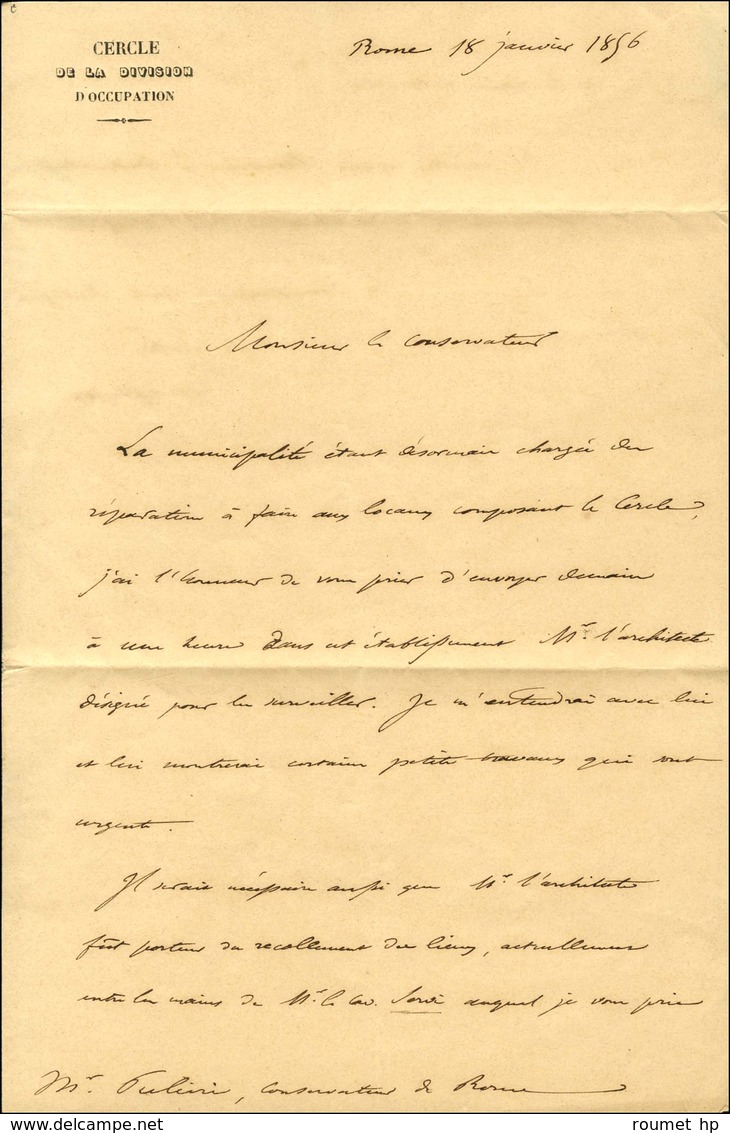 CERCLE
DE LA DIVISION
D'OCCUPATION
Rome 18 janvier 1856
Monsieur le conservateur
La municipalité étant désormais chargée des
réparations à faire aux locaux composant le Cercle,
j'ai l'honneur de vous prier d'envoyer demain
à une heure dans cet établissement Mr. l'architecte
désigné pour les surveiller. Je m'entendrai avec lui
et lui montrerai certains petits travaux qui sont
urgents.
Il serait nécessaire aussi que Mr. l'architecte
fût porteur du recollement des lieux, actuellement
entre les mains de Mr. le Cav. auquel je vous prie
Mr. conservateur de Rome
roumet hp